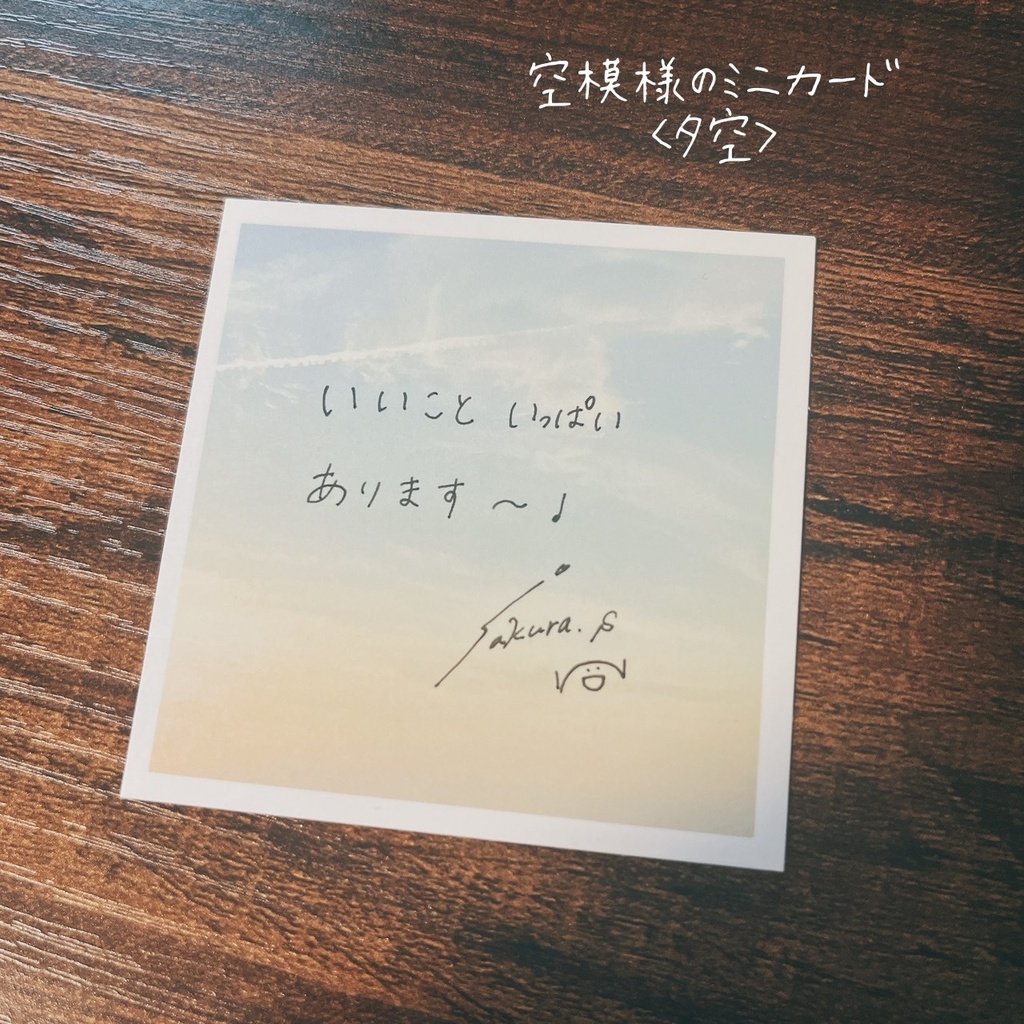 空模様のミニカード
<夕空>
いいこと いっぱい
あります〜♪
Sakura.S